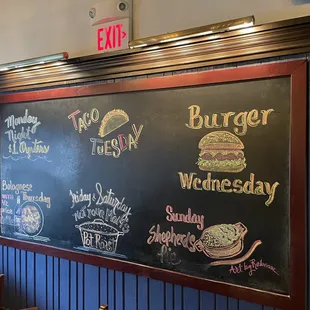 EXIT
Monday
Night
$1 Oysters
TACO
TUESDAY
Burger
Wednesday
Bolognese
Thursday
Friday & Saturday
Pot Roast
Sunday
Shepherd's
Pie